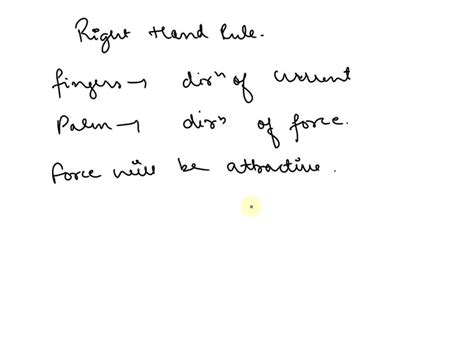 Right Hand Rule.
fingers → dirⁿ of current
Palm → dirⁿ of force.
force will be attractive.